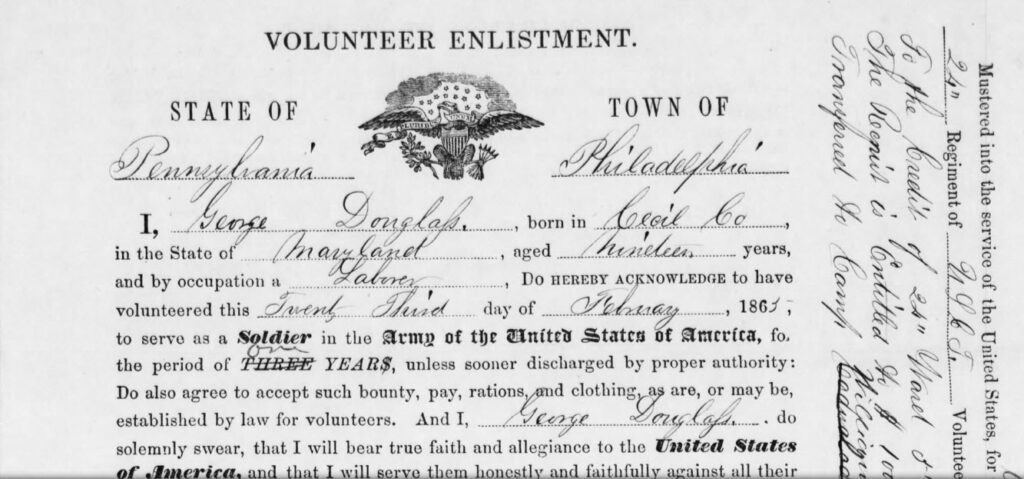 VOLUNTEER ENLISTMENT.
STATE OF
TOWN OF
Pennsylvania
Philadelphia
I, George Douglass. , born in Cecil Co ,
in the State of Maryland , aged Nineteen years,
and by occupation a Laborer , DO HEREBY ACKNOWLEDGE to have
volunteered this Twenty Third day of February , 1865,
to serve as a Soldier in the Army of the United States of America, fo
one
the period of THREE YEARS, unless sooner discharged by proper authority:
Do also agree to accept such bounty, pay, rations, and clothing, as are, or may be,
established by law for volunteers. And I, George Douglass. do
solemnly swear, that I will bear true faith and allegiance to the United States
of America, and that I will serve them honestly and faithfully against all their
Mustered into the service of the United States, for
24" Regiment of U.S.C.T. Voluntee
To the Credit of 24" Ward
The Recruit is Entitled to $ 100
Transferred to Camp